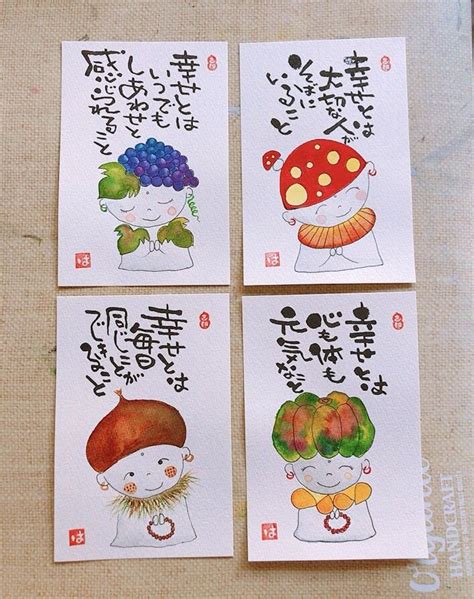 幸せとは
いつでも
しあわせと
感じられること
は
幸せとは
大切な人が
そばに
いること
は
幸せとは
毎日
同じことが
できること
は
幸せとは
心も体も
元気なこと
は
HANDCRAFT